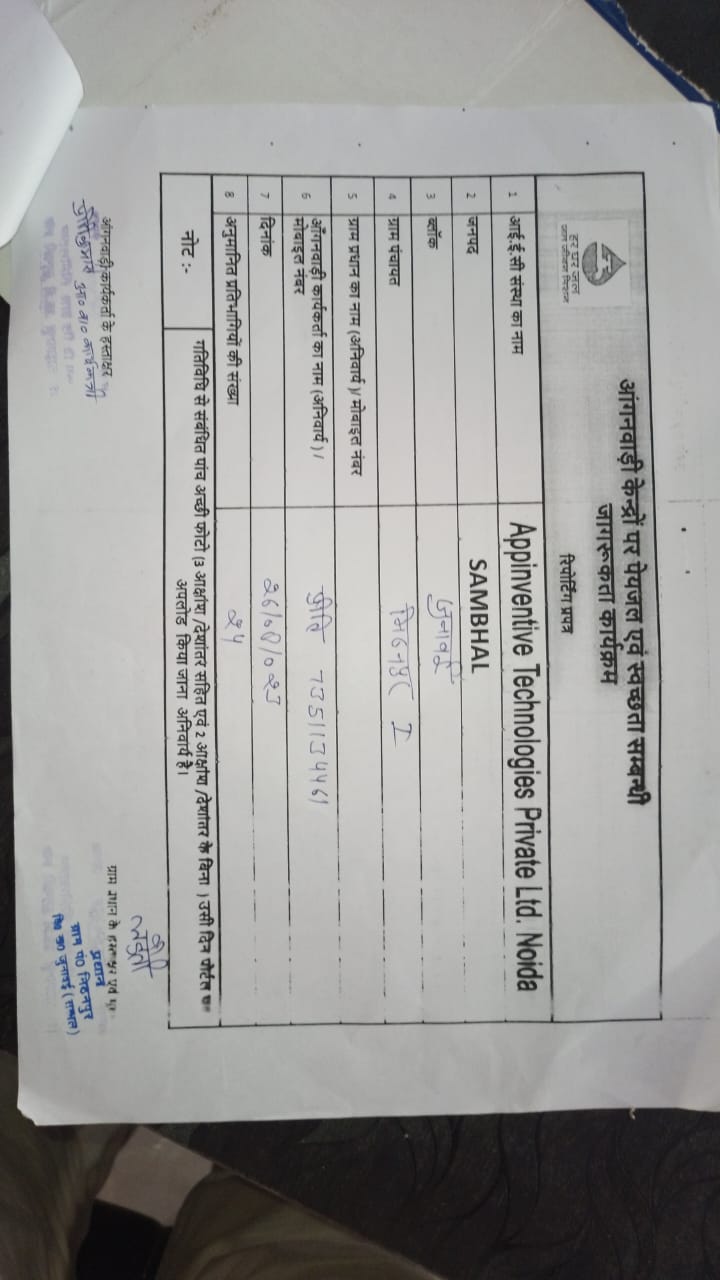 हर घर जल
जल जीवन मिशन
आंगनवाड़ी केन्द्रों पर पेयजल एवं स्वच्छता सम्बन्धी
जागरूकता कार्यक्रम
रिपोर्टिंग प्रपत्र
1 आई.ई.सी संस्था का नाम Appinventive Technologies Private Ltd. Noida
2 जनपद SAMBHAL
3 ब्लॉक जुनावई
4 ग्राम पंचायत मिठनपुर I
5 ग्राम प्रधान का नाम (अनिवार्य)/ मोबाइल नंबर
6 आँगनवाड़ी कार्यकर्ता का नाम (अनिवार्य) /
मोबाइल नंबर
प्रीति 7351134461
7 दिनांक
8 अनुमानित प्रतिभागियों की संख्या २५
नोट :- गतिविधि से संबंधित पांच अच्छी फोटो (3 आक्षांश /देशांतर सहित एवं 2 आक्षांश /देशांतर के बिना ) उसी दिन पोर्टल पर
अपलोड किया जाना अनिवार्य है।
आंगनवाड़ी कार्यकर्ता के हस्ताक्षर
ग्राम प्रधान के हस्ताक्षर एवं
प्रधान
ग्राम पं० मिठनपुर
वि० ख० जुनावई (सम्भल)